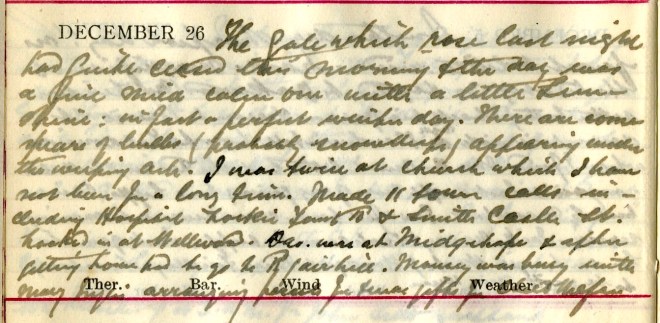 DECEMBER 26 The gale which rose last night
had quite ceased this morning & the day was
a fine mild calm one with a little sun-
shine: in fact a perfect winter day. There are some
spears of bulbs (probably snowdrops) appearing under
the weeping ash. I was twice at church which I have
not been for a long time. Made 11 town calls in-
cluding Hospital & Smith Castle St.
looked in at Wellwood. were at Midgehope & after
getting home had to go to Fairhill. was busy with
Ther. Bar. Wind Weather
May arranging for